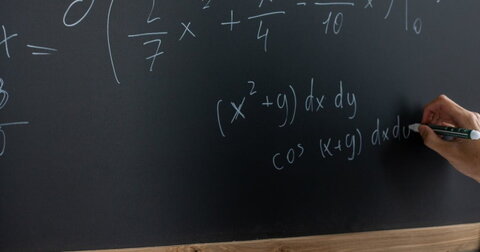 x = ( 2/7 x² + /4 + /10 x ) |₀
(x² + y) dx dy
cos (x+y) dx dy